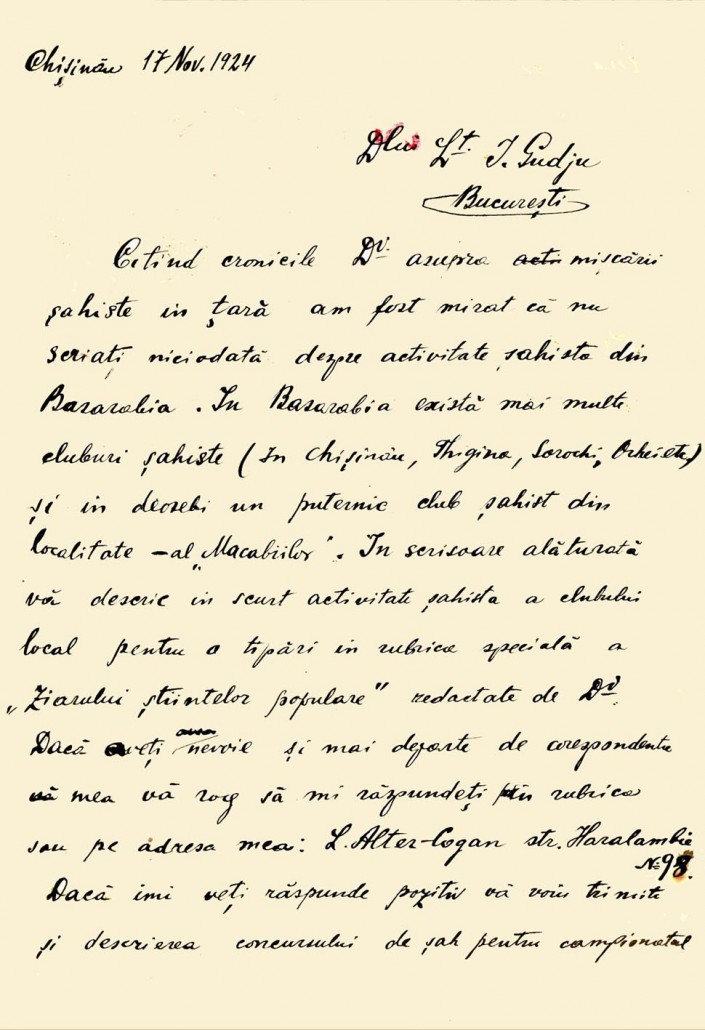 Chișinău 17 Nov. 1924
Dlui Lt. I. Gudju
București
Citind cronicile Dv. asupra mișcării
șahiste in țară am fost mirat că nu
scriați niciodată despre activitate șahista din
Basarabia. In Basarabia există mai multe
cluburi șahiste (In Chișinău, Thigina, Sorochi, Orheiete)
și in deosebi un puternic club șahist din
localitate – al „Macabiilor". In scrisoare alăturată
vă descric in scurt activitate șahista a clubului
local pentru o tipări in rubrica specială a
„Ziarului științelor populare" redactate de Dv.
Dacă veți nevoie și mai departe de corespondente
mea vă rog să mi răzpundeți in rubrica
sau pe adresa mea: L. Alter-Cogan str. Haralambie
№ 98.
Dacă imi veți răspunde pozitiv vă voiu trimite
și descrierea concursului de șah pentru campionatul